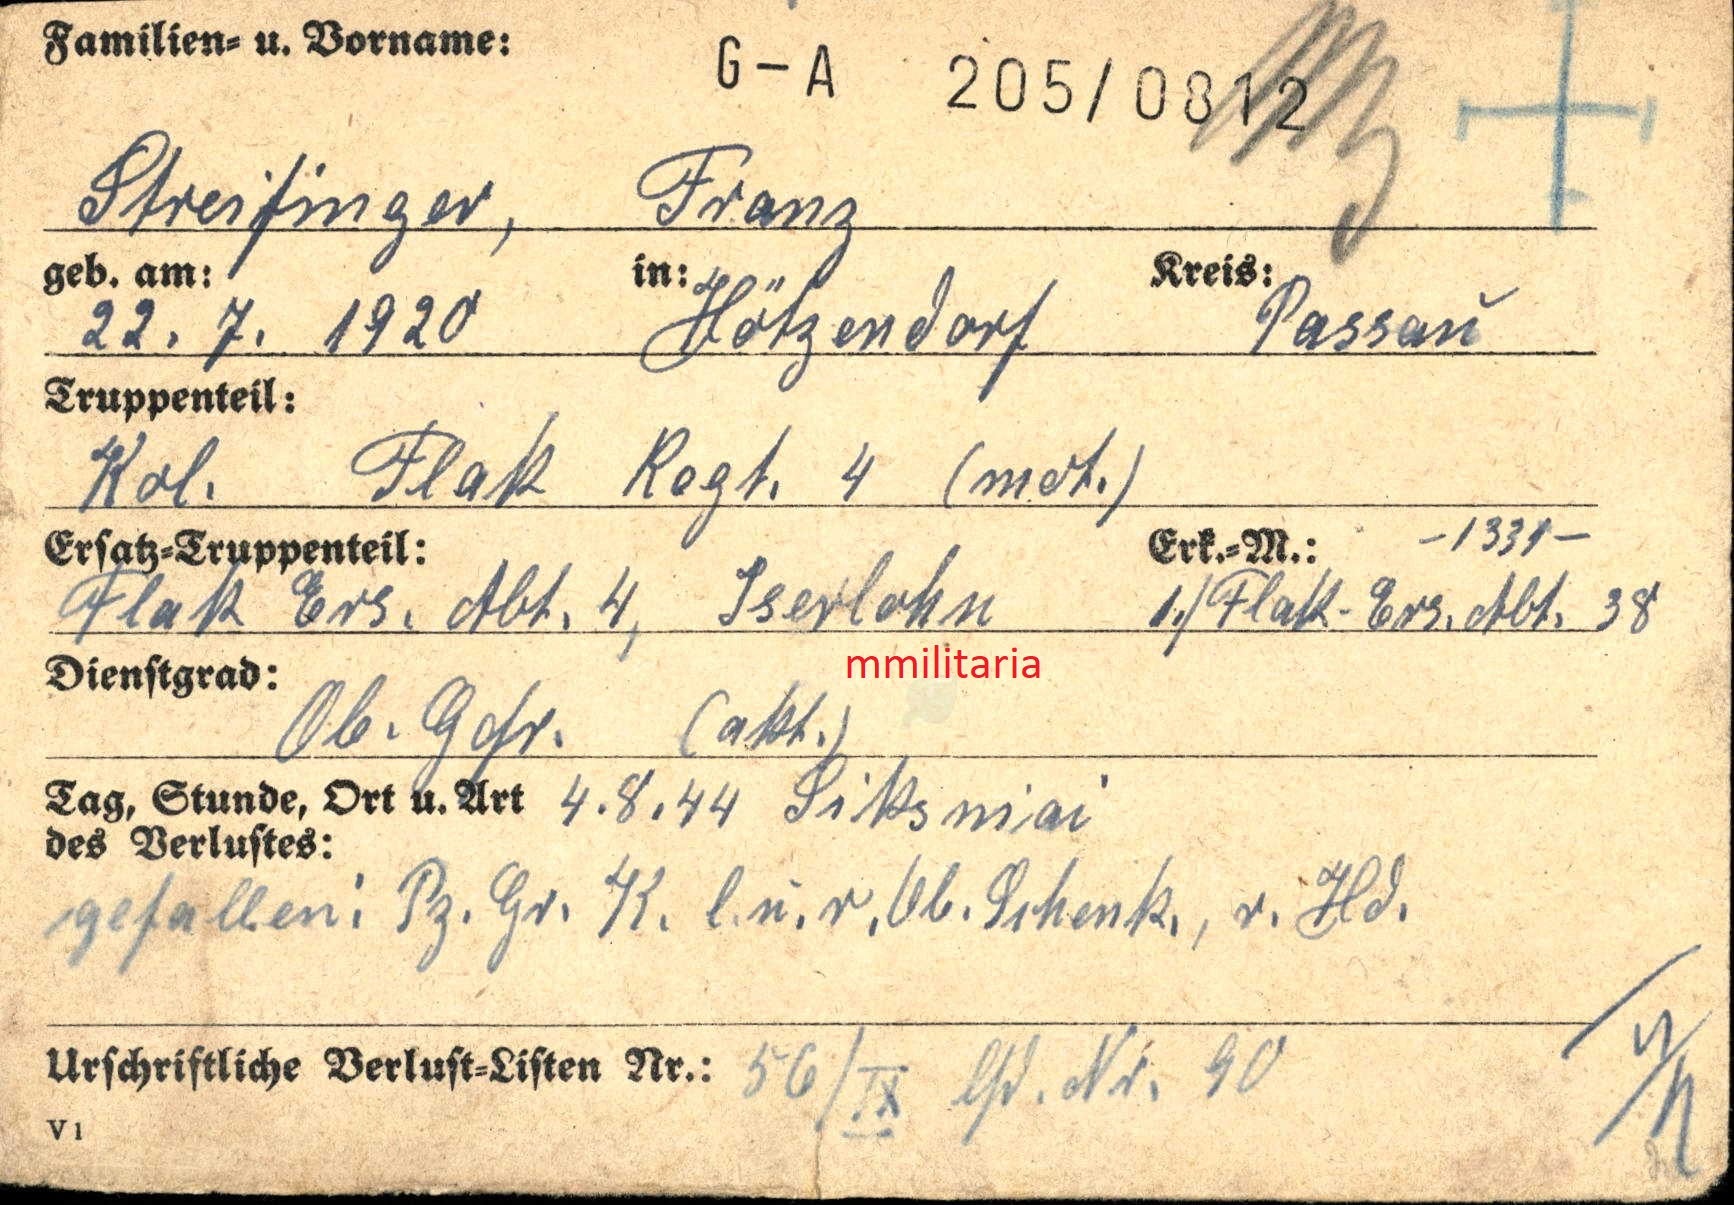 Familien- u. Vorname:
G-A 205/0812
Streifinger, Franz
geb. am: in: Kreis:
22. 7. 1920 Hötzendorf Passau
Truppenteil:
Kol. Flak Regt. 4 (mot.)
Ersatz-Truppenteil: Erk.-M.: -1331-
Flak Ers. Abt. 4, Iserlohn 1./Flak-Ers. Abt. 38
Dienstgrad:
Ob. Gefr. (akt.)
mmilitaria
Tag, Stunde, Ort u. Art 4.8.44 Siksniai
des Verlustes:
gefallen: Pz. Gr. K. l. u. r. Ob. Schenk., r. Hd.
Urschriftliche Verlust-Listen Nr.: 56/IX lfd. Nr. 90
V 1